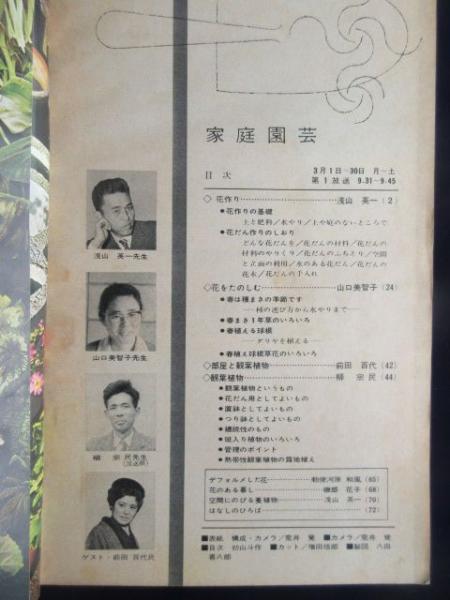 家庭園芸
目次
3月1日―30日 月―土
第1放送 9.31―9.45
◇ 花作り 浅山 英一 (2)
●花作りの基礎
土と肥料/水やり/土や庭のないところで
●花だん作りのしおり
どんな花だんを/花だんの材料/花だんの
材料のやりくり/花だんのふちどり/空間
と立面の利用/水のある花だん/花だんの
花木/花だんの手入れ
◇花をたのしむ 山口美智子 (24)
●春は種まきの季節です
――種の選び方から水やりまで――
●春まき1年草のいろいろ
●春植える球根
――ダリヤを植える――
●春植え球根草花のいろいろ
◇部屋と観葉植物 前田 百代 (42)
◇観葉植物 柳 宗民 (44)
●観葉植物というもの
●花だん用としてよいもの
●置鉢としてよいもの
●つり鉢としてよいもの
●纏繞性のもの
●斑入り植物のいろいろ
●管理のポイント
●熱帯性観葉植物の露地植え
デフォルメした花 勅使河原 和風 (65)
花のある暮し 磯部 花子 (68)
空間にのびる蔓植物 浅山 英一 (70)
はなしのひろば (72)
■表紙 構成・カメラ/荒井 覚 ■カメラ/荒井 覚
■目次 初山斗作 ■カット/増田悟郎 ■製図 八田
喜八郎
浅山 英一先生
山口美智子先生
柳 宗民先生
ゲスト・前田 百代氏